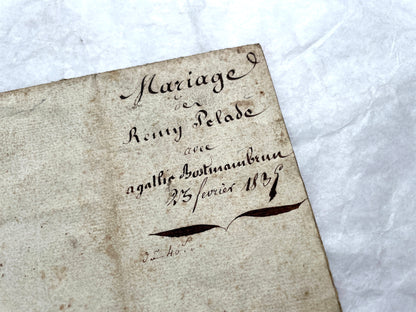 Mariage
de
Remy Pelade
avec
agathe Bostmambrun
23 fevrier 1835